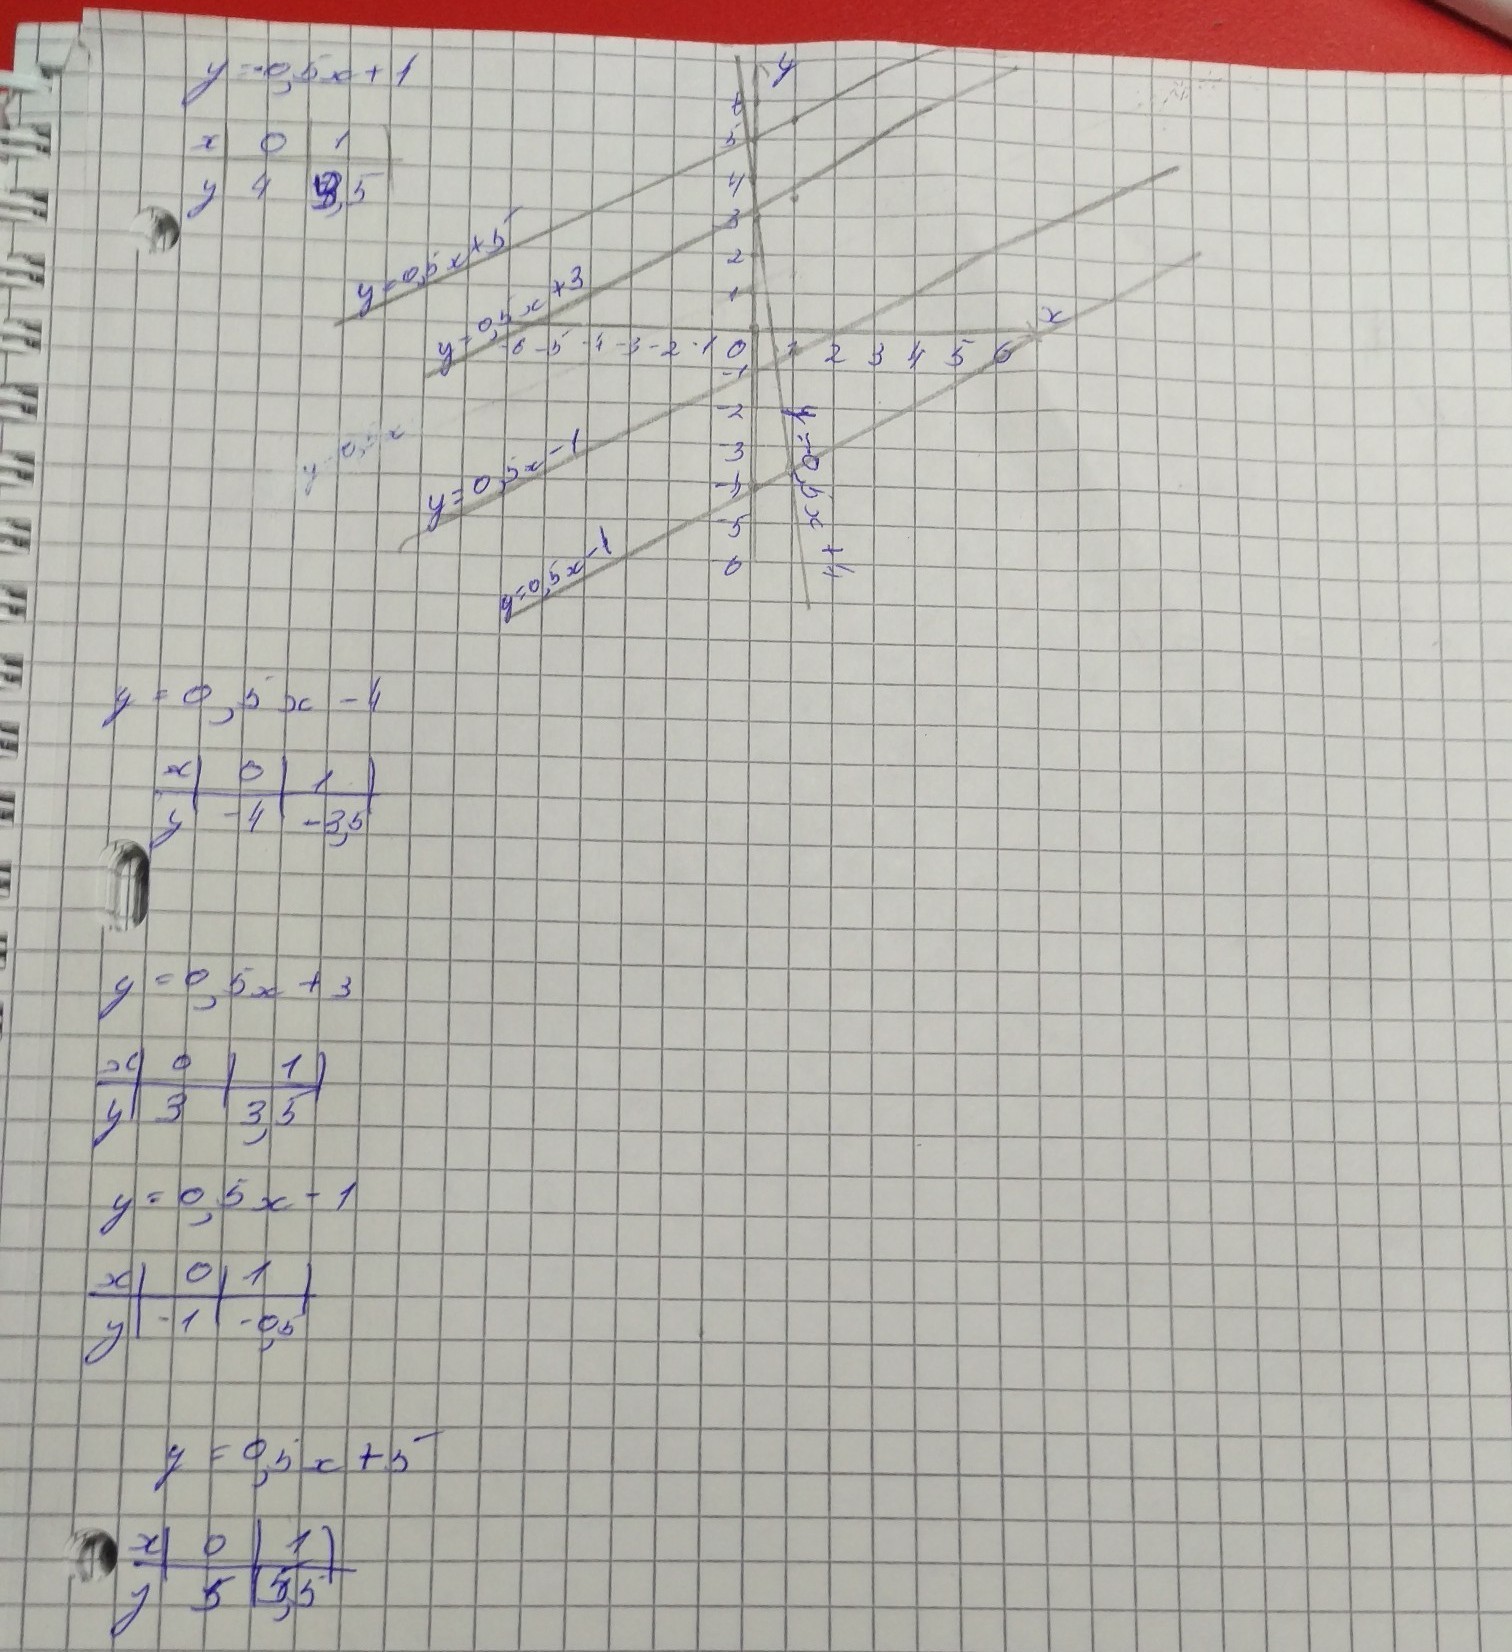 y = -0,5x + 1
x 0 1
y 4 3,5
y
6
5
4
3
2
1
y = 0,5x + 5
y = 0,5x + 3
x
-6 -5 -4 -3 -2 -1 0 1 2 3 4 5 6
-1
-2
-3
-4
-5
6
y = 0,5x
y = 0,5x - 1
y = 0,5x - 4
y = -0,5x + 4
y = 0,5x - 4
x 0 1
y -4 -3,5
y = 0,5x + 3
x 0 1
y 3 3,5
y = 0,5x - 1
x 0 1
y -1 -0,5
y = 0,5x + 5
x 0 1
y 5 5,5